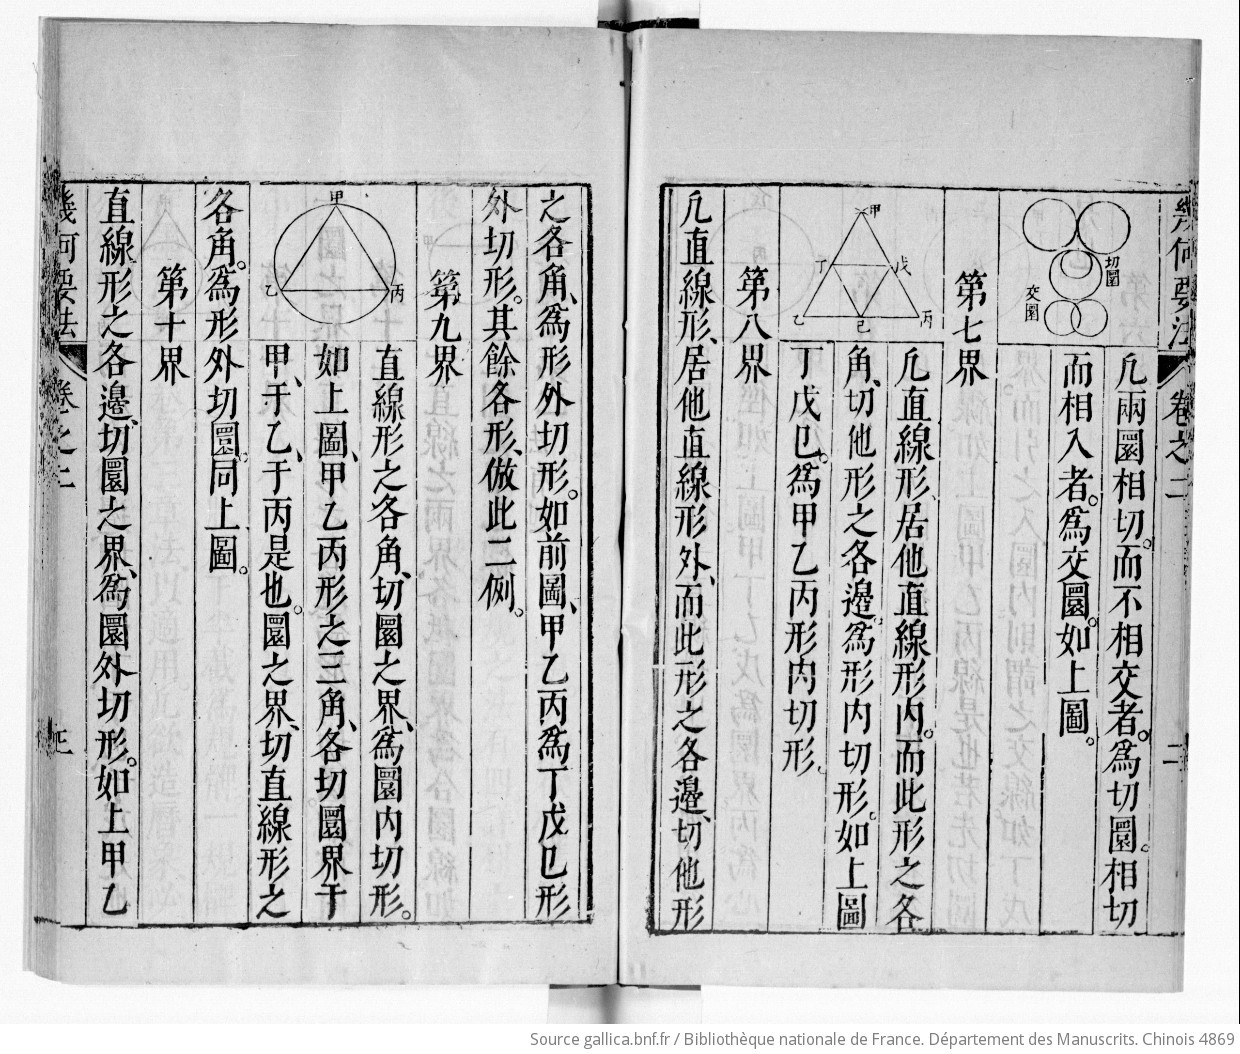 幾何要法
卷之二
二
切圜
交圜
凢兩圜相切。而不相交者。為切圜。相切
而相入者。為交圜。如上圖。
第七界
甲
丁
戊
乙
己
丙
凢直線形、居他直線形內。而此形之各
角、切他形之各邊。為形內切形。如上圖
丁戊巳。為甲乙丙形內切形。
第八界
凢直線形、居他直線形外、而此形之各邊、切他形
之各角、為形外切形。如前圖、甲乙丙為丁戊巳形
外切形。其餘各形、倣此二例。
第九界
甲
乙
丙
直線形之各角、切圜之界、為圜內切形。
如上圖、甲乙丙形之三角、各切圜界于
甲、于乙、于丙是也。圜之界、切直線形之
各角。為形外切圜。同上圖。
第十界
直線形之各邊、切圜之界、為圜外切形。如上甲乙
幾何要法
卷之二
Source gallica.bnf.fr / Bibliothèque nationale de France. Département des Manuscrits. Chinois 4869